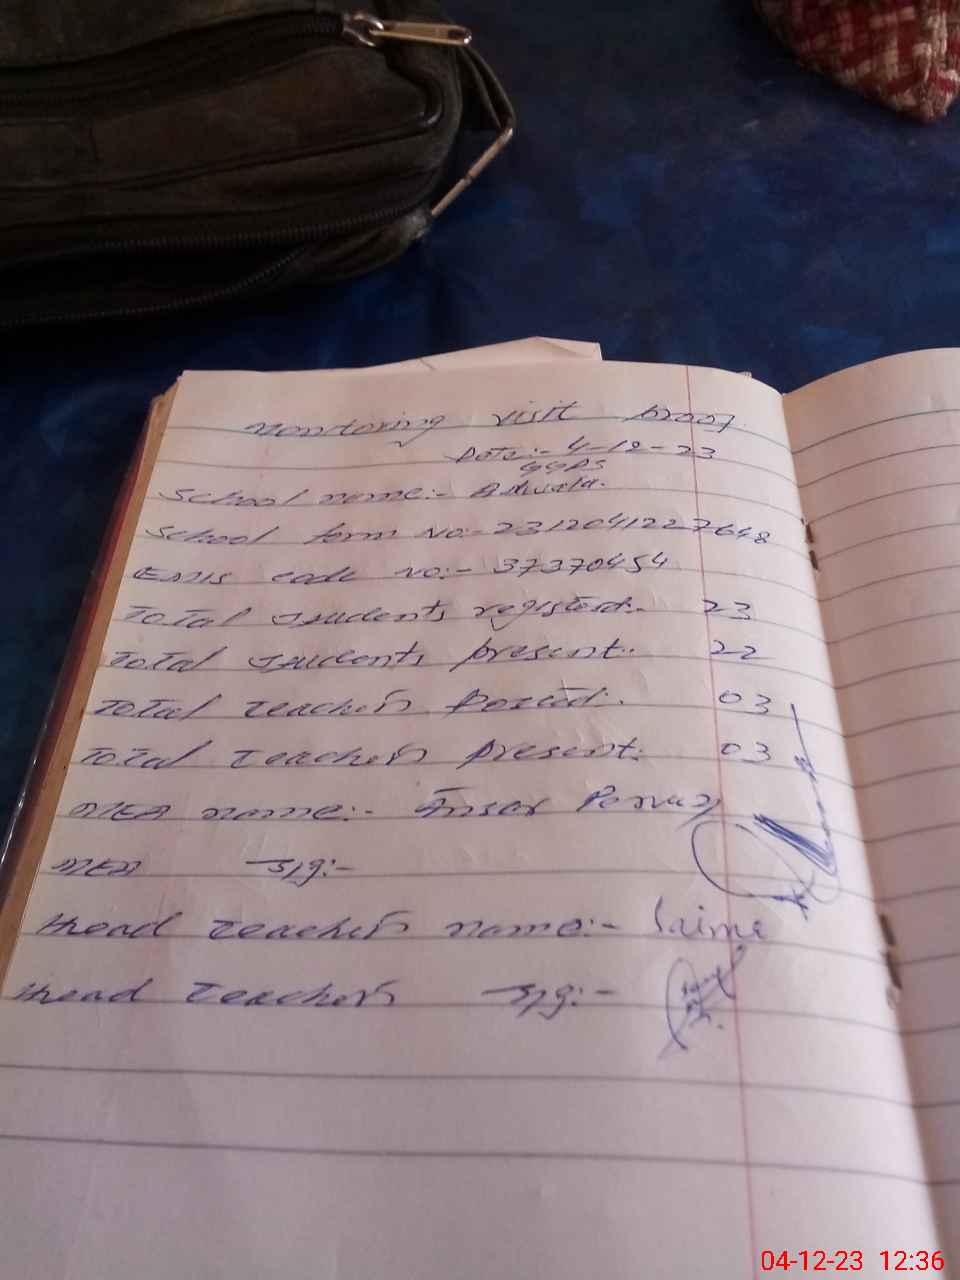 Monitoring visit proof
Date:- 4-12-23
GGPS
School name:-
School form No:- 2312041227648
EMIS code No:- 37370454
Total students registerd:. 23
Total students present:. 22
Total teachers Posted:. 03
Total teachers present:. 03
MEA name:- Ansar Pervaz
MEA Sig:-
Head teachers name:- Saima
Head teachers Sig:-
04-12-23 12:36